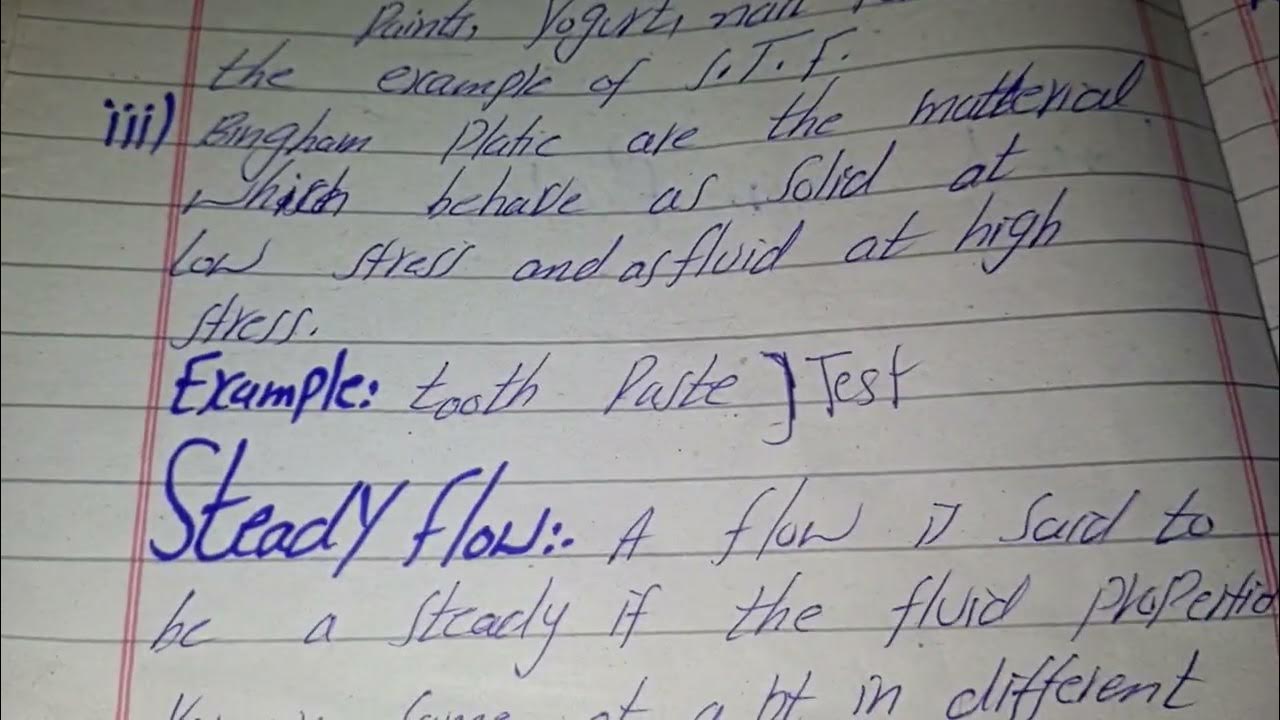 Paints, Yogurt, nail
the example of S.T.F.
iii) Bingham Platic are the matterial
which behave as solid at
low stress and as fluid at high
stress.
Example: tooth Paste ] Test
Steady flow:- A flow is said to
be a steady if the fluid properties
at a pt in different